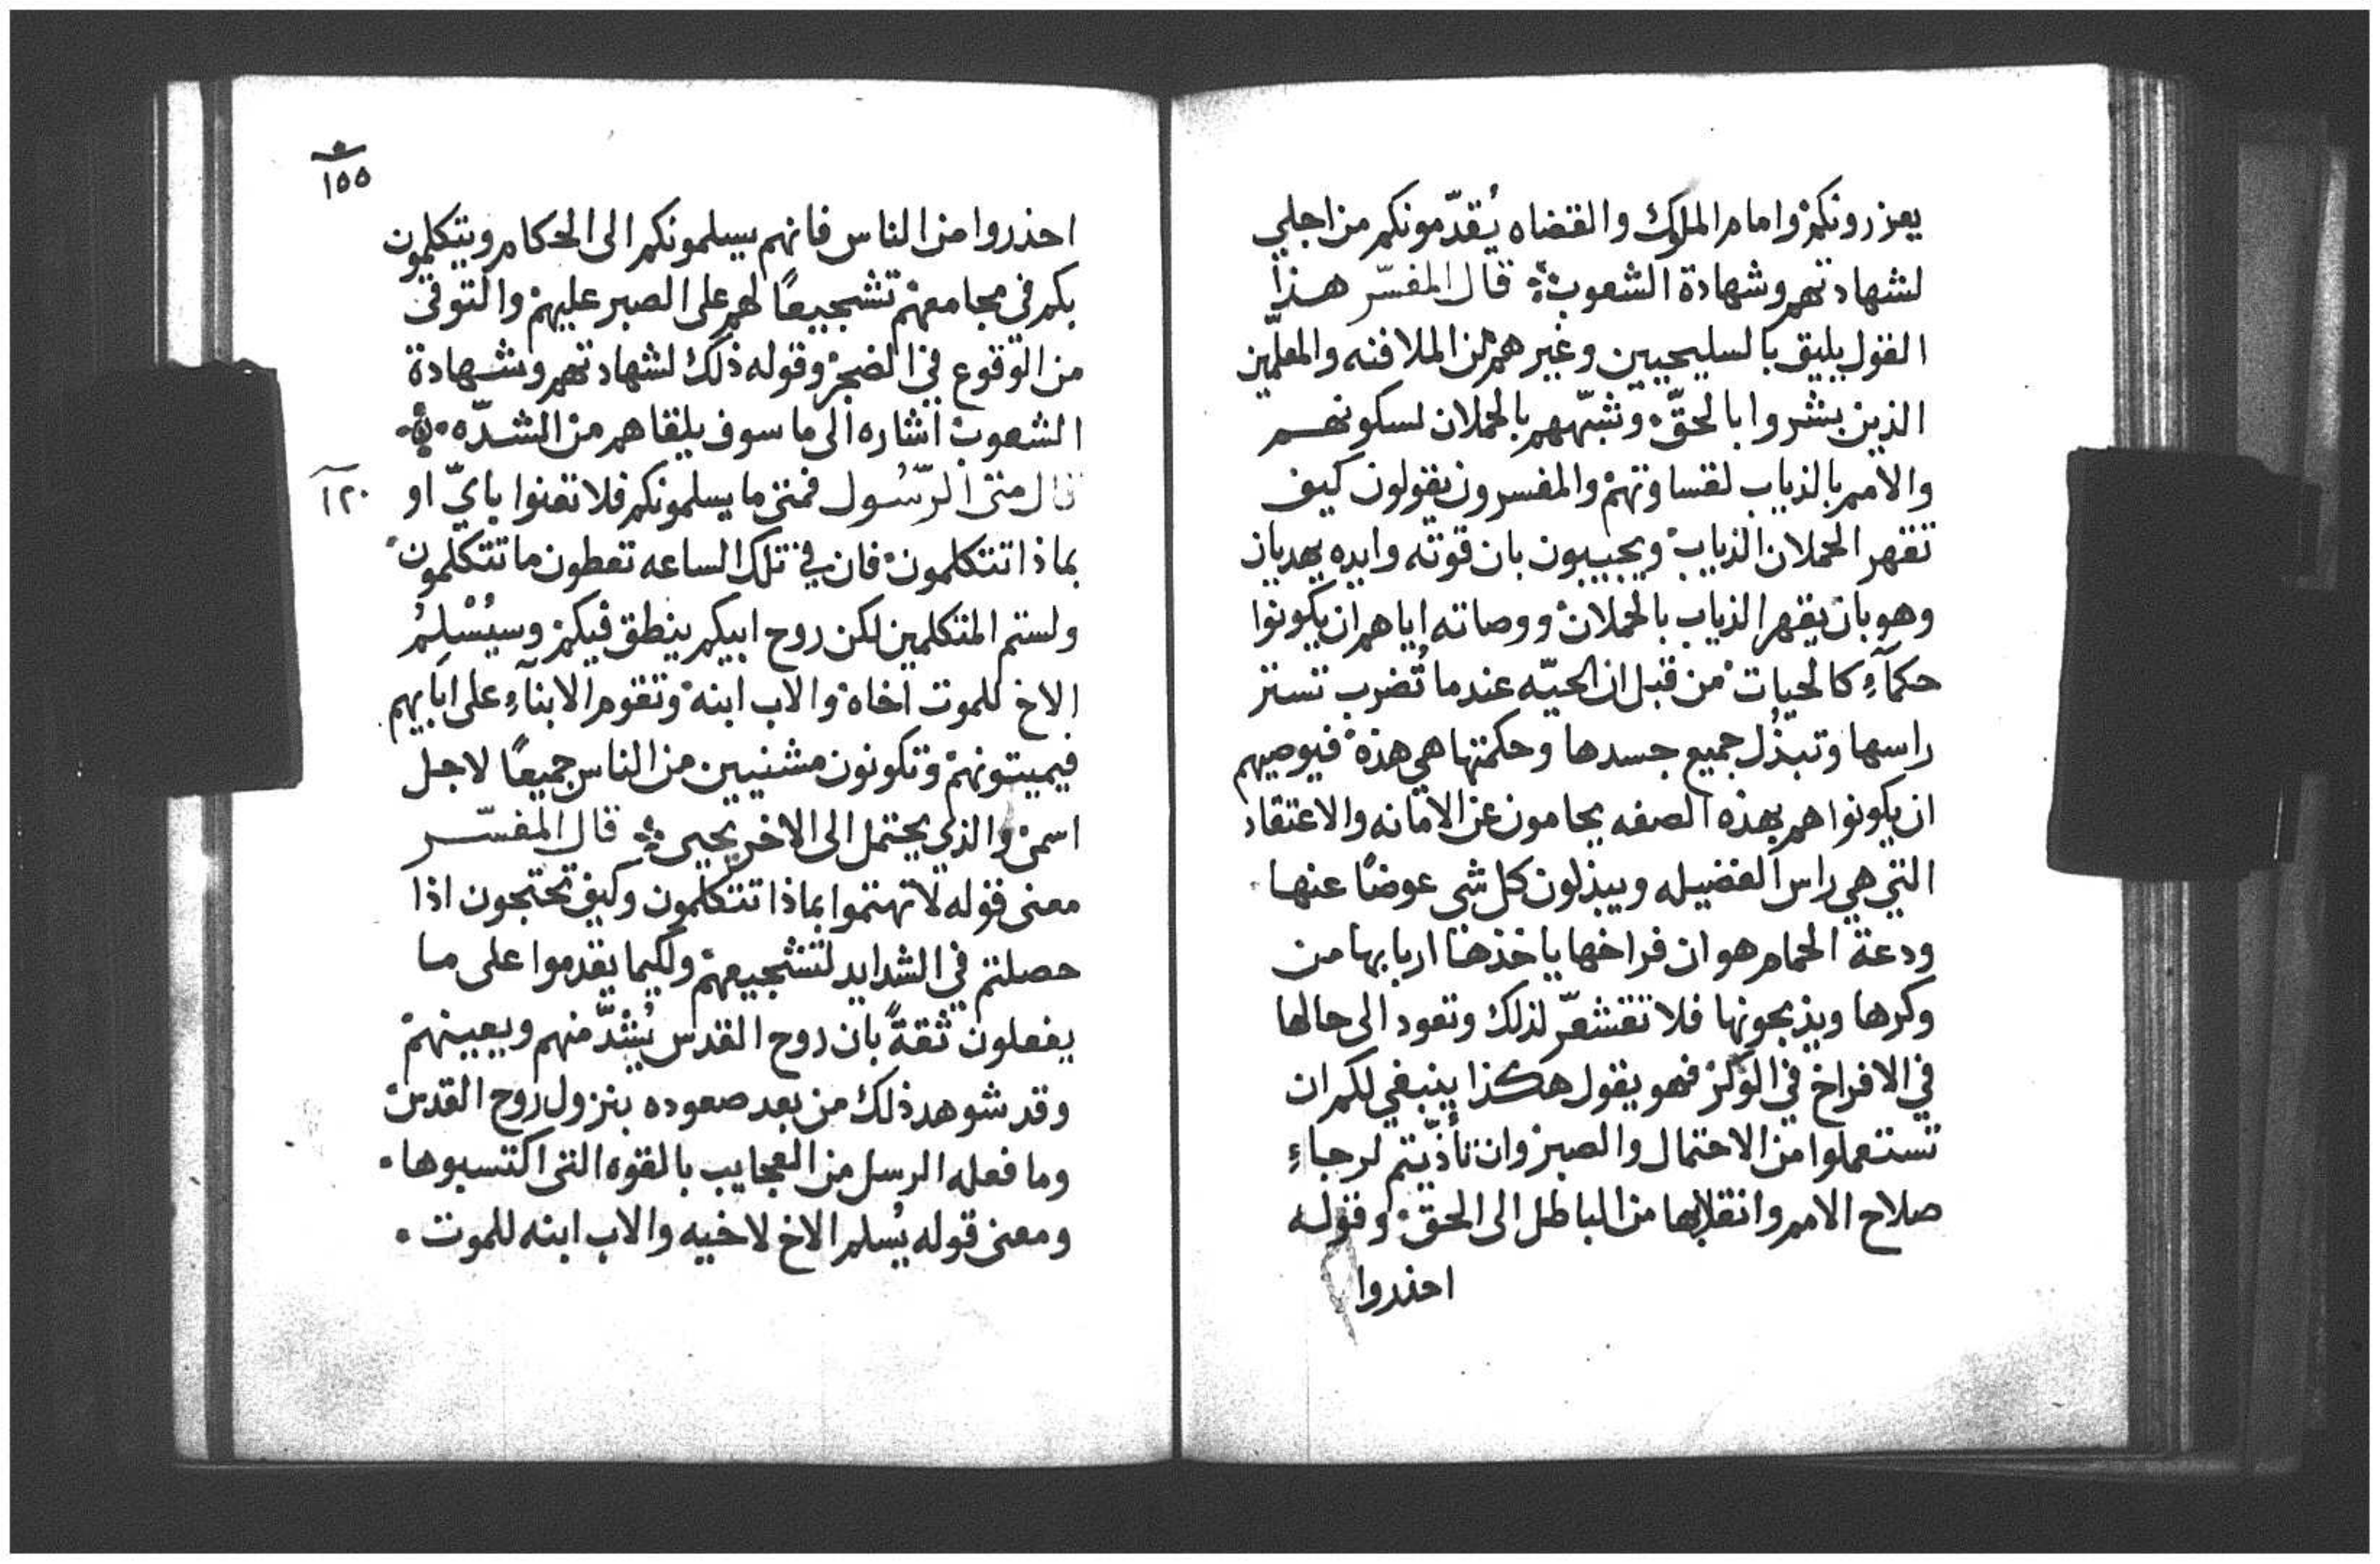 يعزرونكم وامام الملوك والقضاه يُقدّمونكم من اجلي
لشهادتهم وشهادة الشعوب ۞ قال المفسّر هذا
القول يليق بالسليحيين وغيرهم من الملافنه والمعلّمين
الذين بشروا بالحقّ وشبّههم بالحملان لسكونهم
والامم بالذياب لقساوتهم والمفسرون يقولون كيف
تقهر الحملان الذياب ويجيبون بان قوته وايده يهديان
وهو بان يقهر الذياب بالحملان ووصاته اياهم ان يكونوا
حكمآءِ كالحيات من قبل ان الحيّه عندما تُضرب تستر
راسها وتبذُل جميع جسدها وحكمتها هي هذه فيوصيهم
ان يكونوا هم بهذه الصفه يحامون عن الامانه والاعتقاد
التي هي راس الفضيله ويبذلون كل شي عوضًا عنها
ودعة الحمام هو ان فراخها ياخذها اربابها من
وكرها ويذبحونها فلا تقشعرّ لذلك وتعود الى حالها
في الافراخ في الوكر فهو يقول هكذا ينبغي لكم ان
تستعملوا من الاحتمال والصبر وان تأذّيتم لرجاءِ
صلاح الامم وانقلابها من الباطل الى الحق وقوله
احذروا
١٥٥
احذروا من الناس فانهم يسلمونكم الى الحكام ويتكلمون
بكم في مجامعهم تشجيعًا لهم على الصبر عليهم والتوقي
من الوقوع في الضجر وقوله ذلك لشهادتهم وشهادة
الشعوب اشاره الى ما سوف يلقاهم من الشدّه ۞
قال متى الرّسُول فمتى ما يسلمونكم فلا تعنوا بايّ او
١٢٠
بماذا تتكلمون فان في تلك الساعه تعطون ما تتكلمون
ولستم المتكلمين لكن روح ابيكم ينطق فيكم وسيُسْلِمُ
الاخ للموت اخاه والاب ابنه وتقوم الابنآءِ على ابايهم
فيميتونهم وتكونون مشنيين من الناس جميعًا لاجل
اسمي والذي يحتمل الى الاخر يحيى ۞ قال المفسّر
معنى قوله لا تهتموا بماذا تتكلمون وكيف تحتجون اذا
حصلتم في الشدايد لتشجيعهم ولكيما يقدموا على ما
يفعلون ثقةً بان روح القدس يُشدّ منهم ويعينهم
وقد شوهد ذلك من بعد صعوده بنزول روح القدس
وما فعله الرسل من العجايب بالقوه التي اكتسبوها
ومعنى قوله يُسلم الاخ لاخيه والاب ابنه للموت